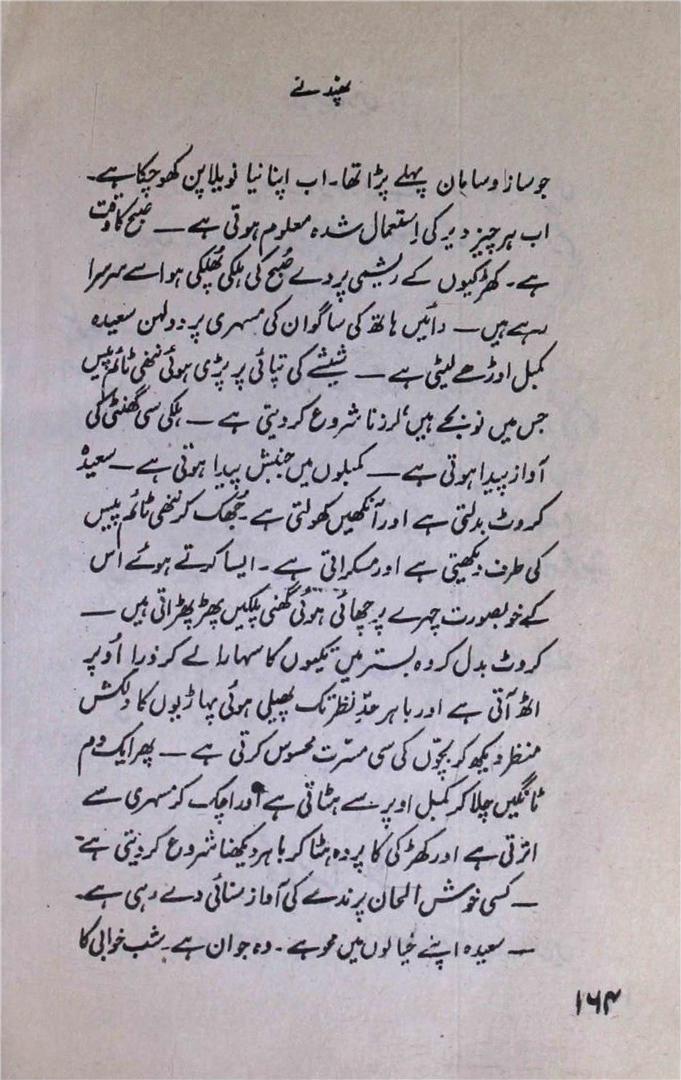 پھندنے
جو ساز و سامان پہلے پڑا تھا۔ اب اپنا نیا نویلا پن کھو چکا ہے۔
اب ہر چیز دیر کی اِستعمال شدہ معلوم ہوتی ہے — صبح کا وقت
ہے۔ کھڑکیوں کے ریشمی پردے صُبح کی ہلکی پُھلکی ہوا سے سرسرا
رہے ہیں — دائیں ہاتھ کی ساگوان کی مسہری پر دولہن سعیدہ
کمبل اوڑھے لیٹی ہے — شیشے کی تپائی پر پڑی ہوئی ننھی ٹائم پیس
جس میں نو بجے ہیں، لرزنا شروع کر دیتی ہے — ہلکی سی گھنٹی کی
آواز پیدا ہوتی ہے — کمبلوں میں جنبش پیدا ہوتی ہے — سعیدہ
کروٹ بدلتی ہے اور آنکھیں کھولتی ہے۔ جُھک کر ننھی ٹائم پیس
کی طرف دیکھتی ہے اور مسکراتی ہے۔ ایسا کرتے ہوئے اُس
کے خوبصورت چہرے پر چھائی ہوئی گھنی پلکیں پھڑپھڑاتی ہیں —
کروٹ بدل کر وہ بستر میں تکیوں کا سہارا لے کر ذرا اُوپر
اٹھ آتی ہے اور باہر حدِّ نظر تک پھیلی ہوئی پہاڑیوں کا دلکش
منظر دیکھ کر بچّوں کی سی مسرّت محسوس کرتی ہے — پھر ایک دم
ٹانگیں چلا کر کمبل اوپر سے ہٹاتی ہے اور اچک کر مسہری سے
اترتی ہے اور کھڑکی کا پردہ ہٹا کر باہر دیکھنا شروع کر دیتی ہے۔
— کسی خوش الحان پرندے کی آواز سنائی دے رہی ہے۔
— سعیدہ اپنے خیالوں میں محو ہے۔ وہ جوان ہے۔ شب خوابی کا
۱۶۴